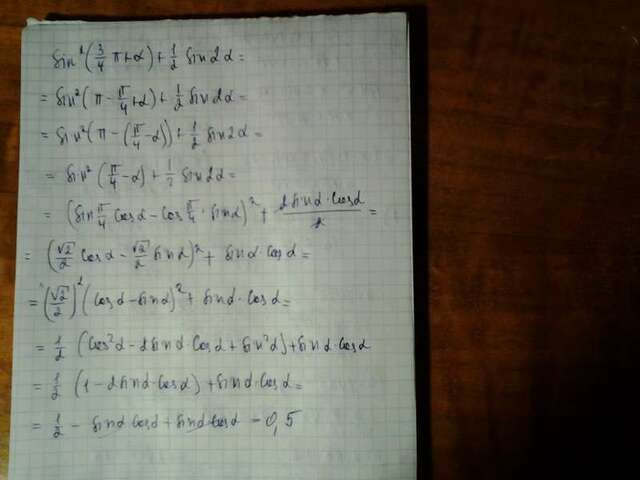 sin²(3/4 π+α)+1/2 sin2α=
= sin²(π-π/4+α)+1/2 sin2α=
= sin²(π-(π/4-α))+1/2 sin2α=
= sin²(π/4-α)+1/2 sin2α=
= (sin π/4 cosα-cos π/4·sinα)²+ 2sinα·cosα/2 =
= (√2/2 cosα-√2/2 sinα)²+ sinα·cosα=
= (√2/2)²(cosα-sinα)²+ sinα·cosα=
= 1/2 (cos²α-2sinα·cosα+sin²α)+sinα·cosα
= 1/2 (1-2sinα·cosα)+sinα·cosα=
= 1/2 - sinα·cosα+sinα·cosα = 0,5